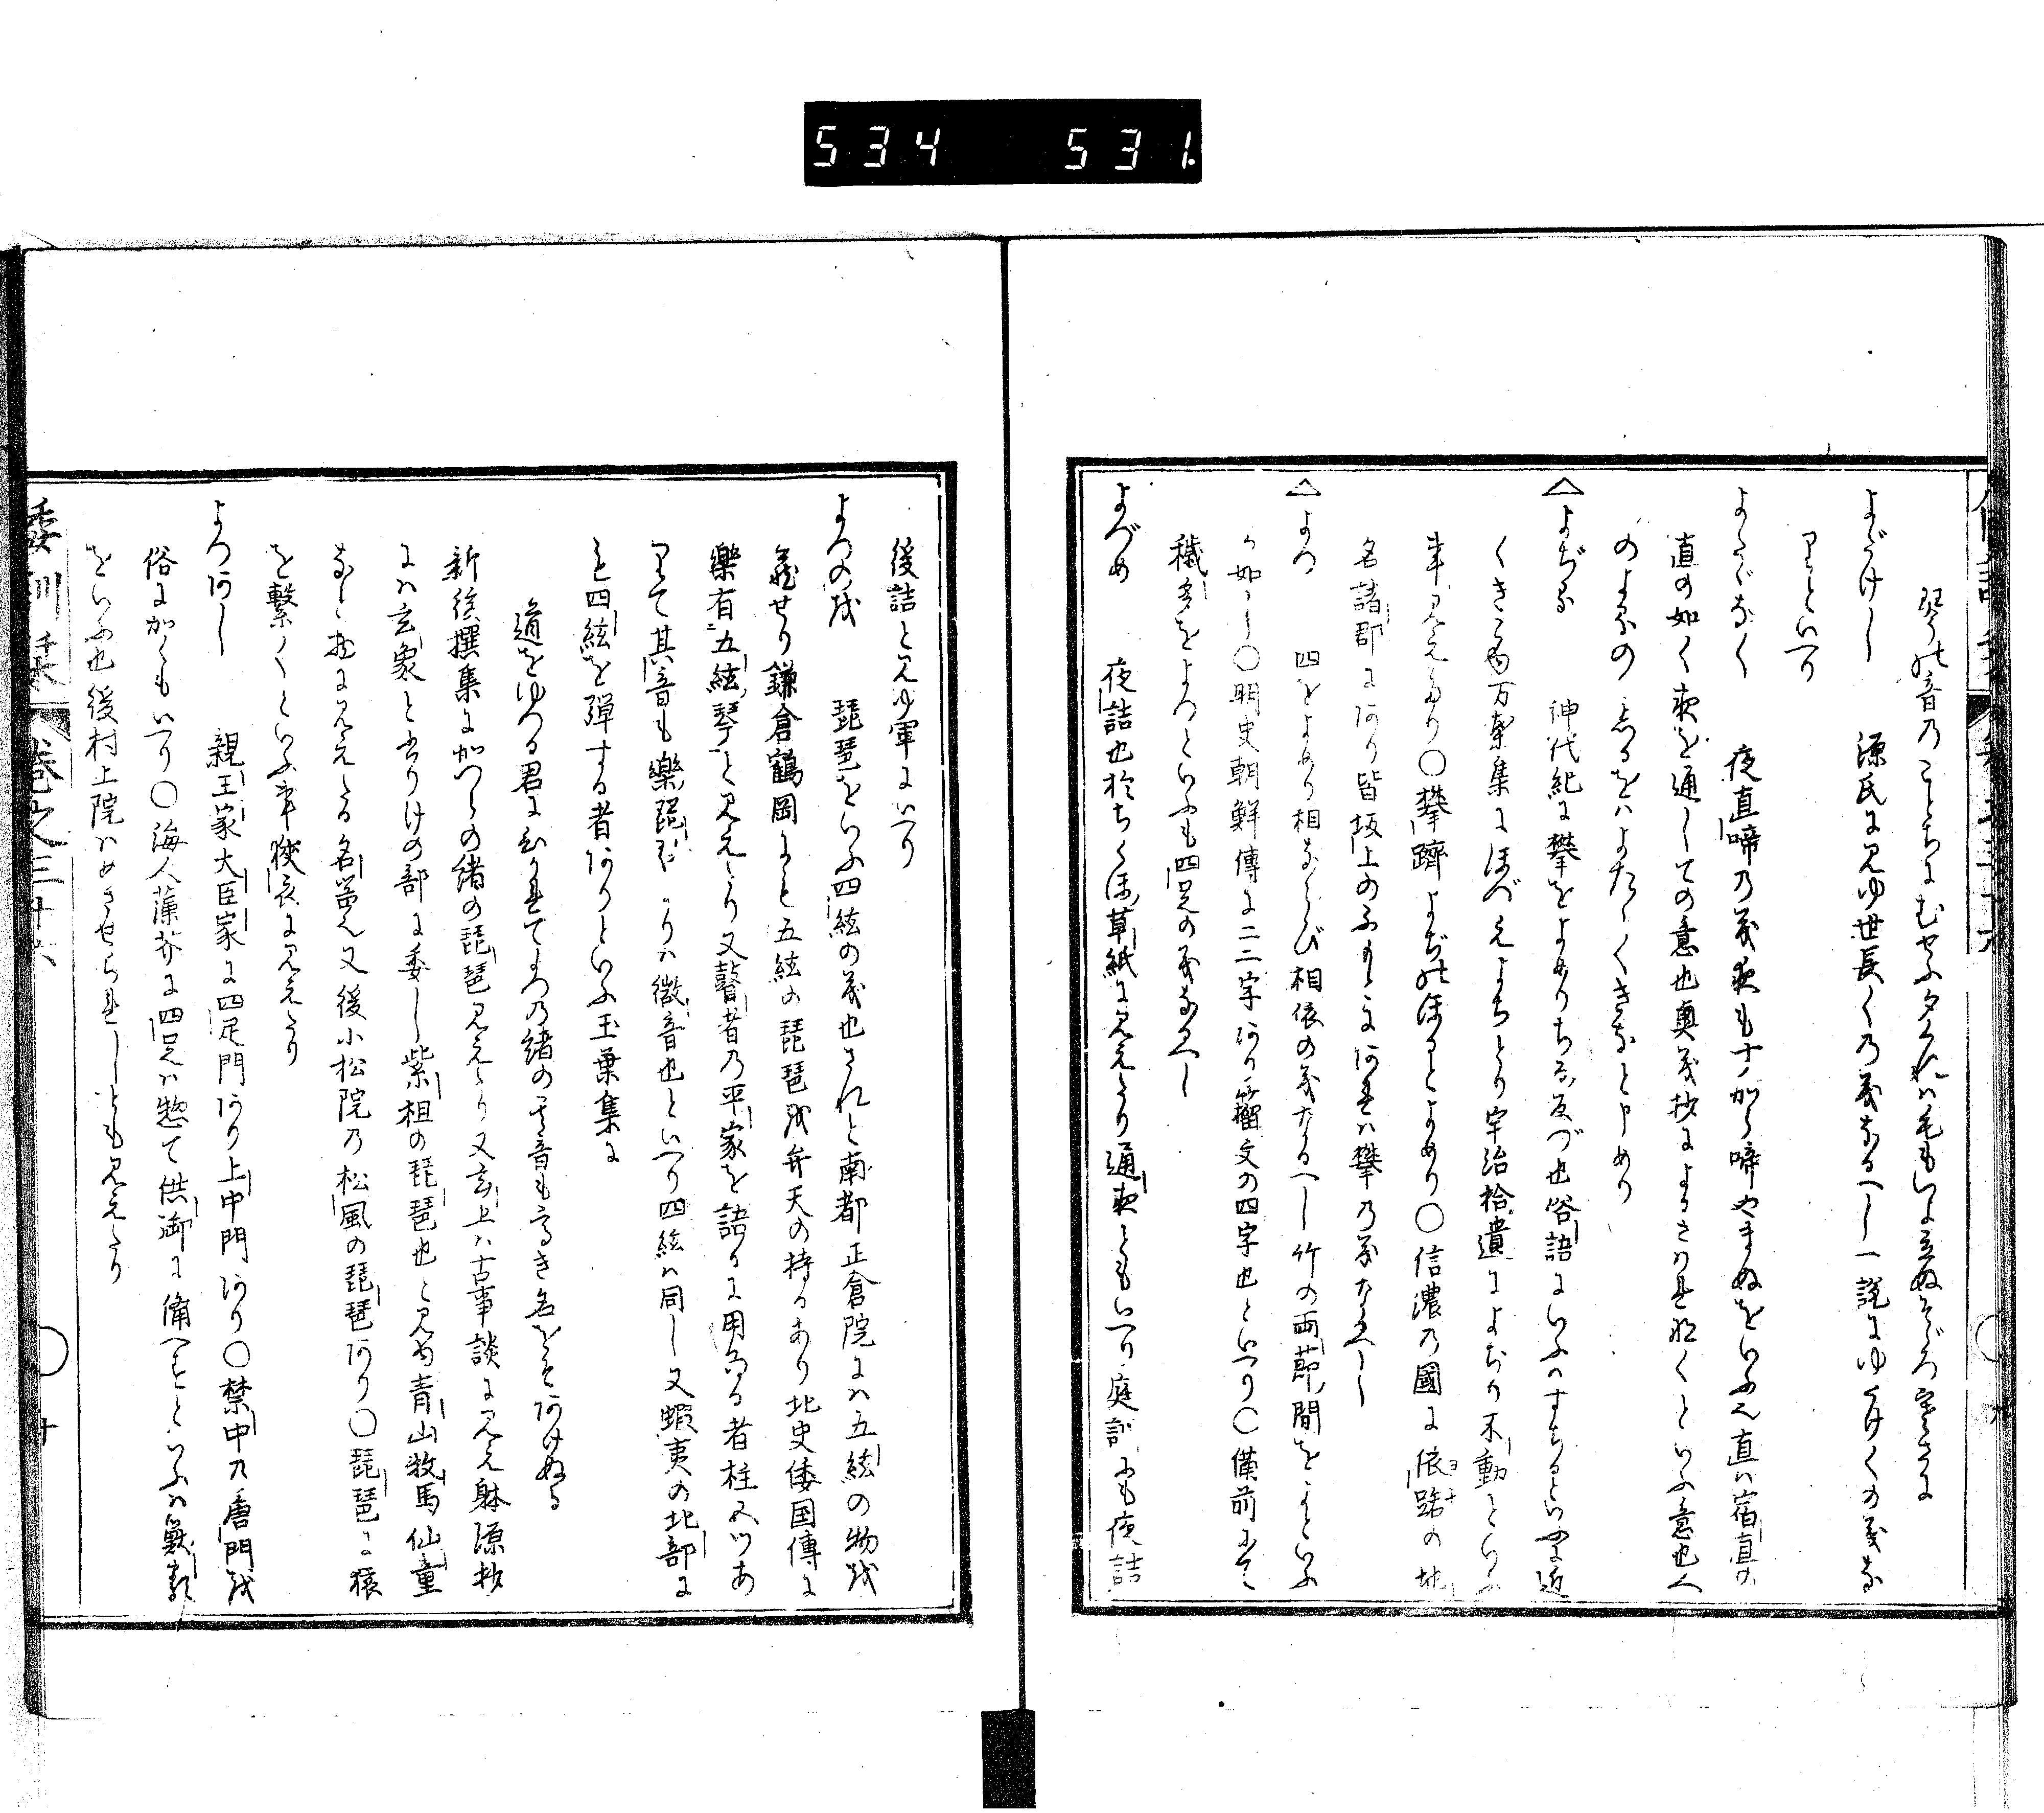 534 531.
琴の音のことちにむせふ夕くれは毛もいよ立ぬそゝろ寒さに
よゝけし 源氏に見ゆ世長くの義なるへし一説にゆゝけくの義な
りといへり
よたゝなく 夜直啼の義夜もすから啼やまぬをいふ也直は宿直の
直の如く夜を通しての意也奥義抄によるさはれ啼くといふ意也人
のよるの るをはよたゝくきなと申めり
△よぢる 神代紀に攀をよめりちる反づ也俗語にいふ すちるといふに近
くきこゆ万葉集に ほべえよちとり宇治拾遺によぢり不動といふ
事見えたり○攀躋よぢのほるとよめり○信濃の國に依踏の地
名諸郡にあり皆坂上のふもとにあれは攀の義なるへし
△よつ 四をよめり相ならび相依の義なるへし竹の両節間をよといふ
か如し○明史朝鮮傳に二二字あり籀文の四字也といへり○備前にて
穢多をよつといふも四足の義なるへし
よづめ 夜詰也おちくほ草紙に見えたり通夜ともいへり庭訓にも夜詰
後詰と見ゆ軍にいへり
よつのを 琵琶をいふ四絃の義也されと南都正倉院には五絃の物を
蔵せり鎌倉鶴岡にも五絃の琵琶を弁天の持るあり北史倭国傳に
樂有二五絃琴と見えたり又瞽者の平家を語るに用ゐる者柱五つあ
りて其音も樂琵琶 りは微音也といへり四絃は同し又蝦夷の北部に
も四絃を弾する者ありといふ玉葉集に
道をゆつる君にひかれてよつの緒の 音も高き名をそあけぬる
新後撰集にかへしの緒の琵琶見えたり又玄上は古事談に見え躰源抄
には玄象と出りけの部に委し紫檀の琵琶也と見ゆ青山牧馬仙童
なと 物に見えたる名器也又後小松院の松風の琵琶あり○琵琶に猿
を繋くといふ事狭衣に見えたり
よつあし 親王家大臣家に四足門あり上中門あり○禁中の唐門を
俗にかくもいへり○海人藻芥に四足は惣て供御に備へすといふは獣類
をいふ也後村上院はめさせられしとも見えたり
倭訓栞 巻之三十六 ○ 十